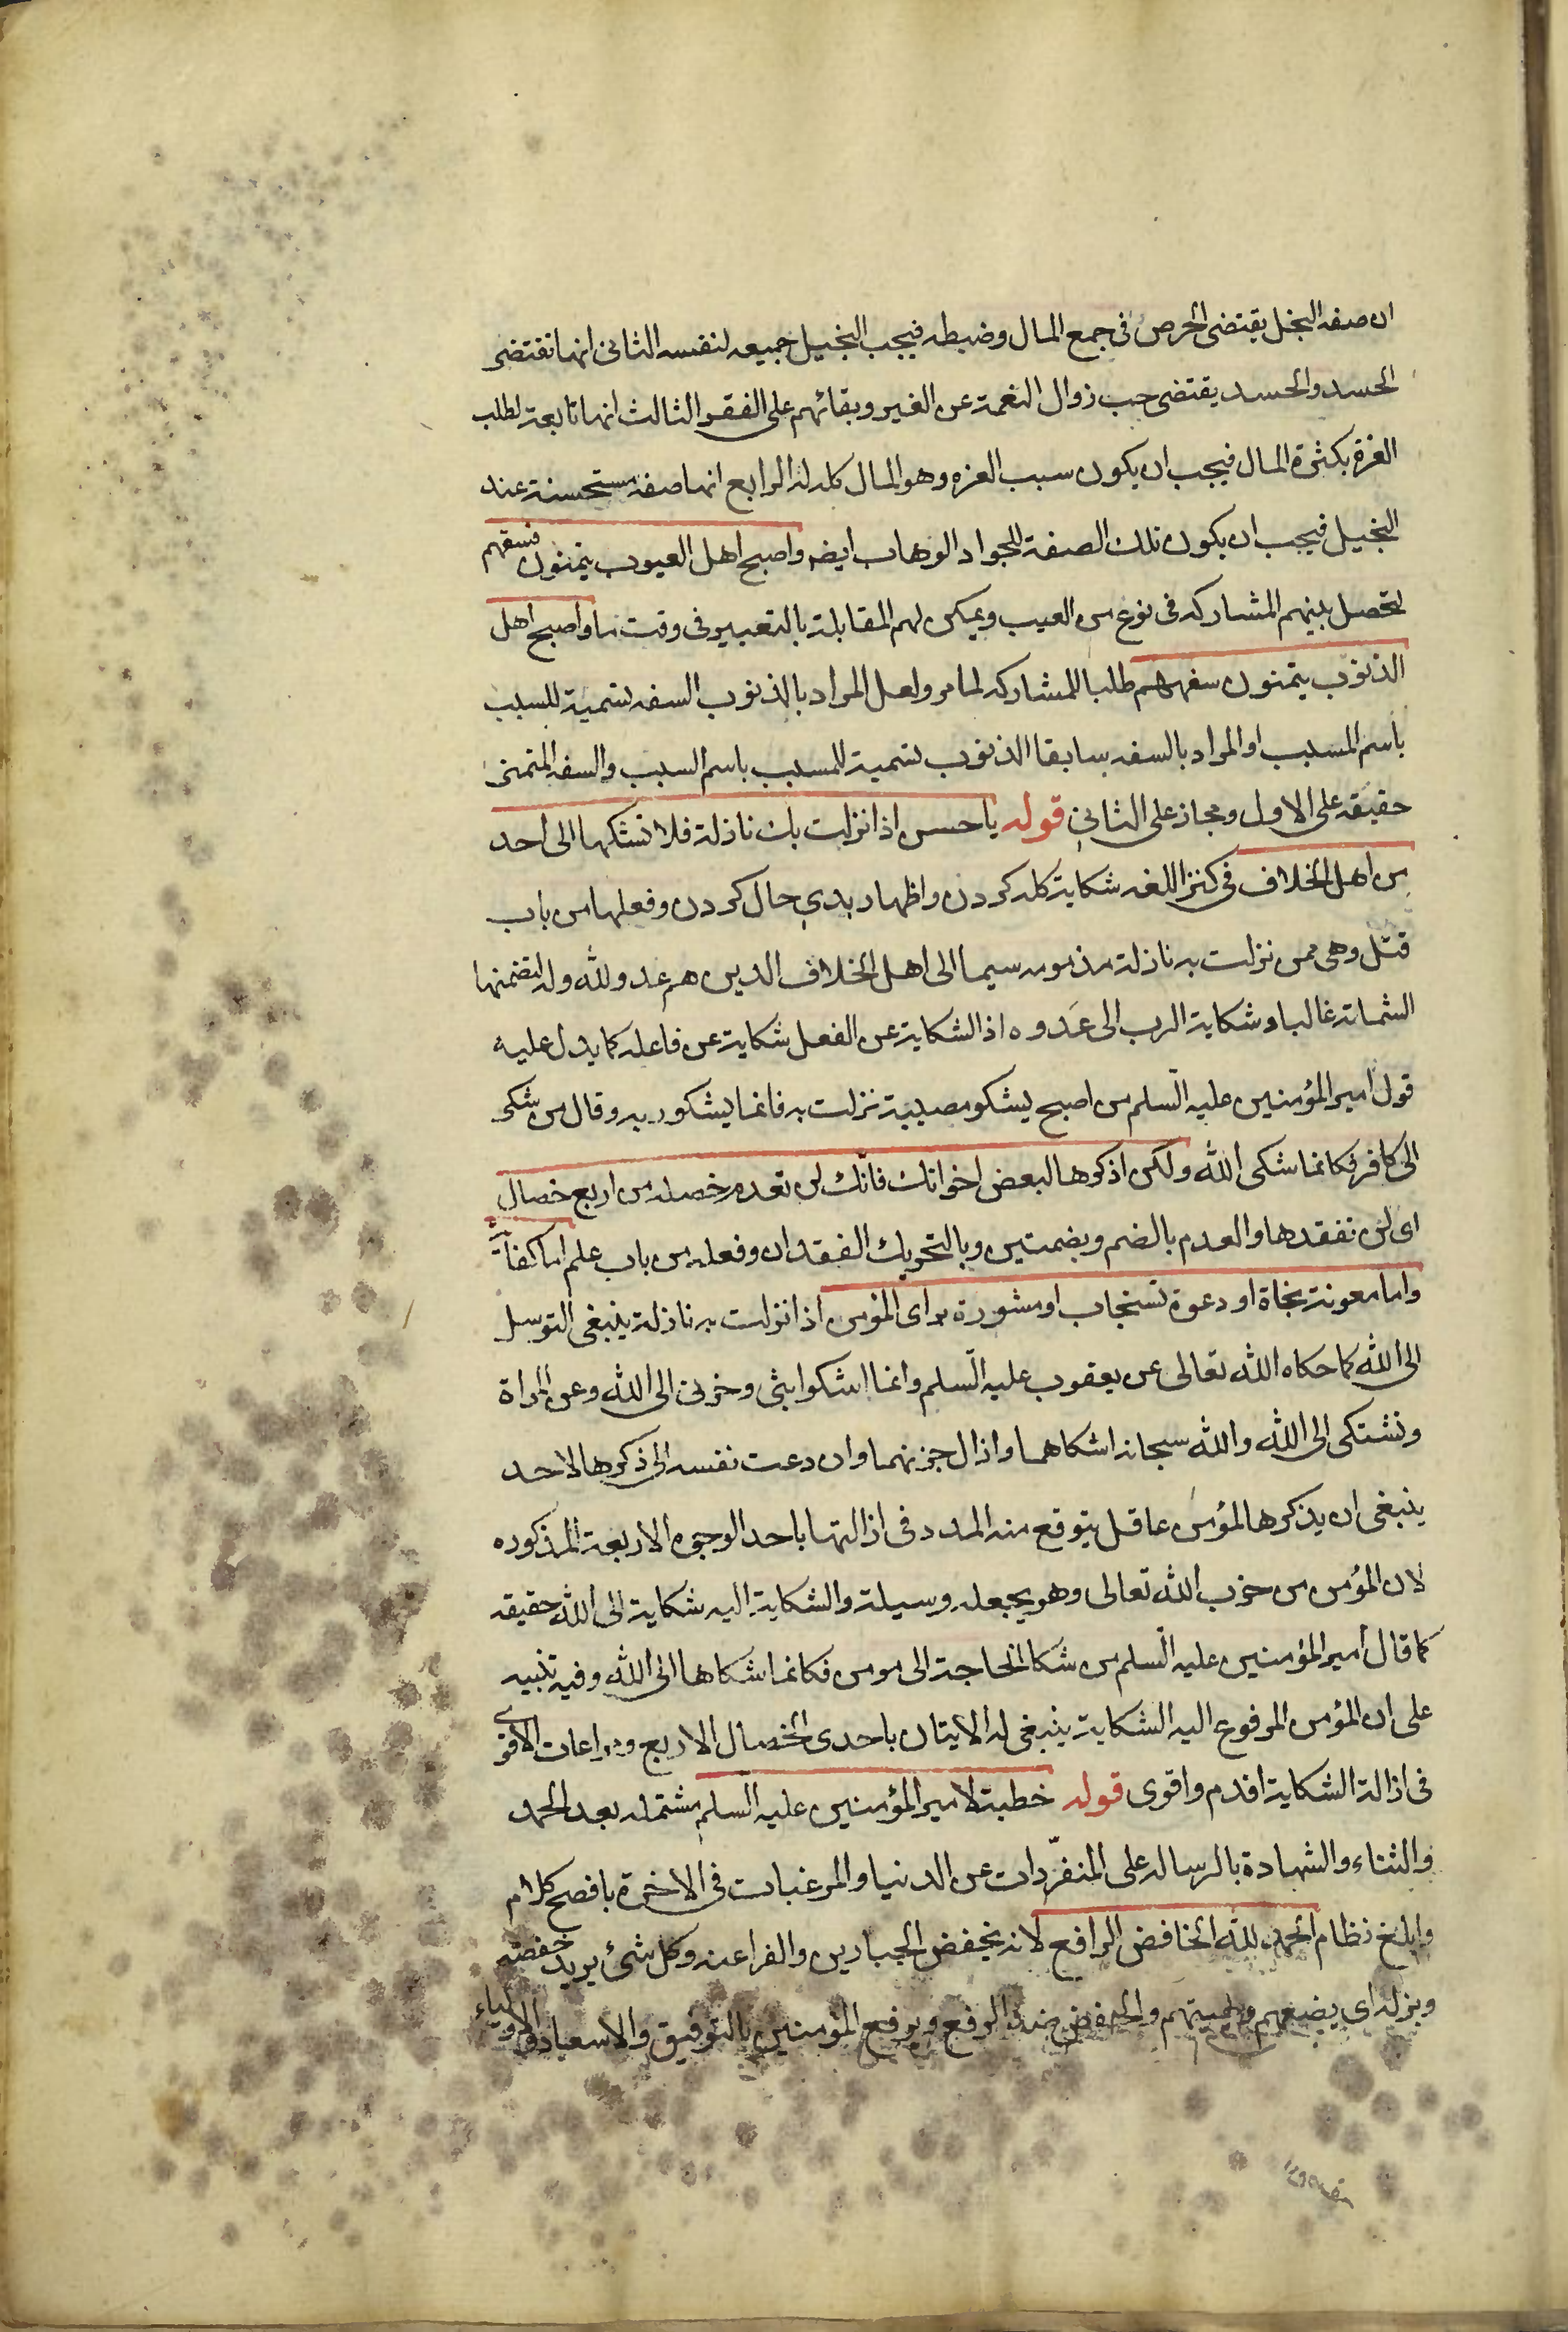 ان صفه البخل يقتضى الحرص فى جمع المال وضبطه فيجب البخيل جميعه لنفسه الثانى انها تقتضى
الحسد والحسد يقتضى حب زوال النعمة عن الغير وبقائهم على الفقر الثالث انها تابعة لطلب
العزة بكثرة المال فيجب ان يكون سبب العزه وهو المال كله له الرابع انها صفه مستحسنة عند
البخيل فيجب ان يكون تلك الصفة للجواد الوهاب ايضه واصبح اهل العيوب يتمنون فسقهم
لتحصل بينهم المشاركه فى نوع من العيب ويمكن لهم المقابلة بالتعيير فى وقت ما واصبح اهل
الذنوب يتمنون سفههم طلبا للمشاركه لما مر ولعل المراد بالذنوب السفه تسمية للسبب
باسم المسبب او المراد بالسفه سابقا الذنوب تسمية للمسبب باسم السبب والسفه المتمنى
حقيقه على الاول ومجاز على الثانى قوله يا حسن اذا نزلت بك نازلة فلا تشكها الى احد
من اهل الخلاف فى كنز اللغه شكاية كله كردن واظهار بدى حال كردن وفعلها من باب
قتل وهى ممن نزلت به نازلة مذمومه سيما الى اهل الخلاف الدين هم عدو لله وله لتضمنها
الشماتة غالبا وشكاية الرب الى عدوه اذ الشكاية عن الفعل شكاية عن فاعله كما يدل عليه
قول امير المؤمنين عليه السلم من اصبح يشكو مصيبة نزلت به فانما يشكو ربه وقال من شكى
الى كافر فكانما شكى الله ولكن اذكرها لبعض اخوانك فانك لن تعدم خصله من اربع خصال
اى لن تفقدها والعدم بالضم وبضمتين وبالتحريك الفقدان وفعله من باب علم اما كفاة
واما معونة بجاة او دعوة تستجاب او مشورة براى المؤمن اذا نزلت به نازلة ينبغى التوسل
الى الله كما حكاه الله تعالى عن يعقوب عليه السلم وانما اشكوا بثى وحزنى الى الله وعن المراة
وتشتكى الى الله والله سبحانه اشكاهما وازال حزنهما وان دعت نفسه الى ذكرها لاحد
ينبغى ان يذكرها لمؤمن عاقل يتوقع منه المدد فى ازالتها باحد الوجوه الاربعة المذكوره
لان المؤمن من حزب الله تعالى وهو يجعله وسيلة والشكاية اليه شكاية الى الله حقيقه
كما قال امير المؤمنين عليه السلم من شكا الحاجة الى مومن فكانما شكاها الى الله وفيه تنبيه
على ان المؤمن المرفوع اليه الشكاية ينبغى له الايتان باحدى الخصال الاربع ومراعات الاقوى
فى ازالة الشكاية اقدم واقوى قوله خطبة لامير المؤمنين عليه السلم مشتمله بعد الحمد
والثناء والشهادة بالرساله على المنفردات عن الدنيا والمرغبات فى الاخرة بافصح كلام
وابلغ نظام الحمد لله الخافض الرافع لانه يخفض الجبارين والفراعنه وكل شئ يريد خفضه
وبزله اى يضعهم ويهينهم والخفض ضد الرفع ويرفع المؤمنين بالتوفيق والاسعاد والاولياء